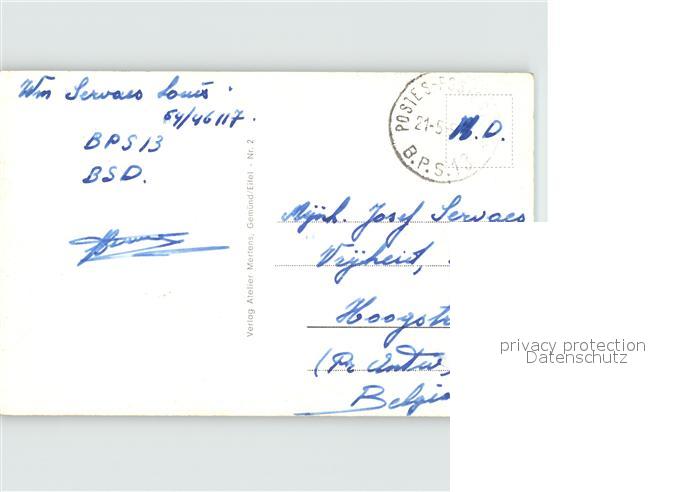 Wm Servaes Louis
64/46117.
BPS13
BSD.
Verlag Atelier Mertens, Gemünd/Eifel - Nr. 2
POSTES-POS
21-5
B.P.S.13
M.D.
Mijnh. Josef Servaes
Vrijheid,
Hoogst
(Pr. Antw.
Belgi
privacy protection
Datenschutz